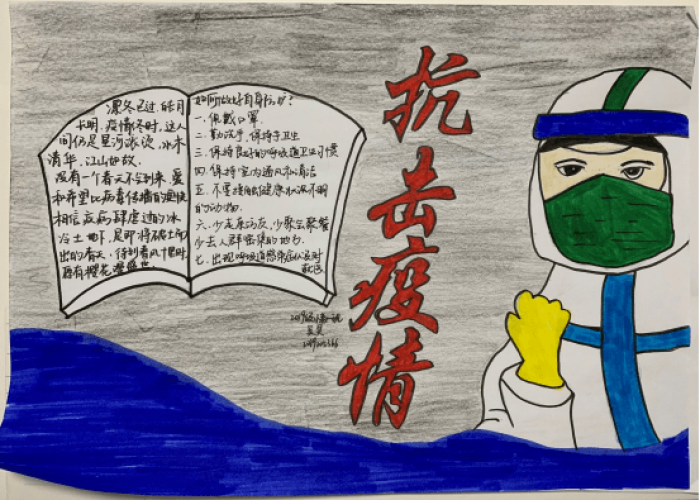 凛冬已过,皓月
长明,疫情冬时,这人
间仍是星河滚烫,水木
清华,江山如故。
没有一个春天不会到来,爱
和希望比病毒传播的更快
相信疫病肆虐过的冰
冷土地下,是即将破土而
出的春天,待到春风
如何做好自身防护?
一、佩戴口罩
二、勤洗手,保持手卫生
三、保持良好的呼吸道卫生习惯
四、保持室内通风和清洁
五、不要接触健康状况不明
的动物.
六、少走亲访友,少聚会聚餐
少去人群密集的地方.
七、出现呼吸道感染症状应及时
就医
抗击疫情